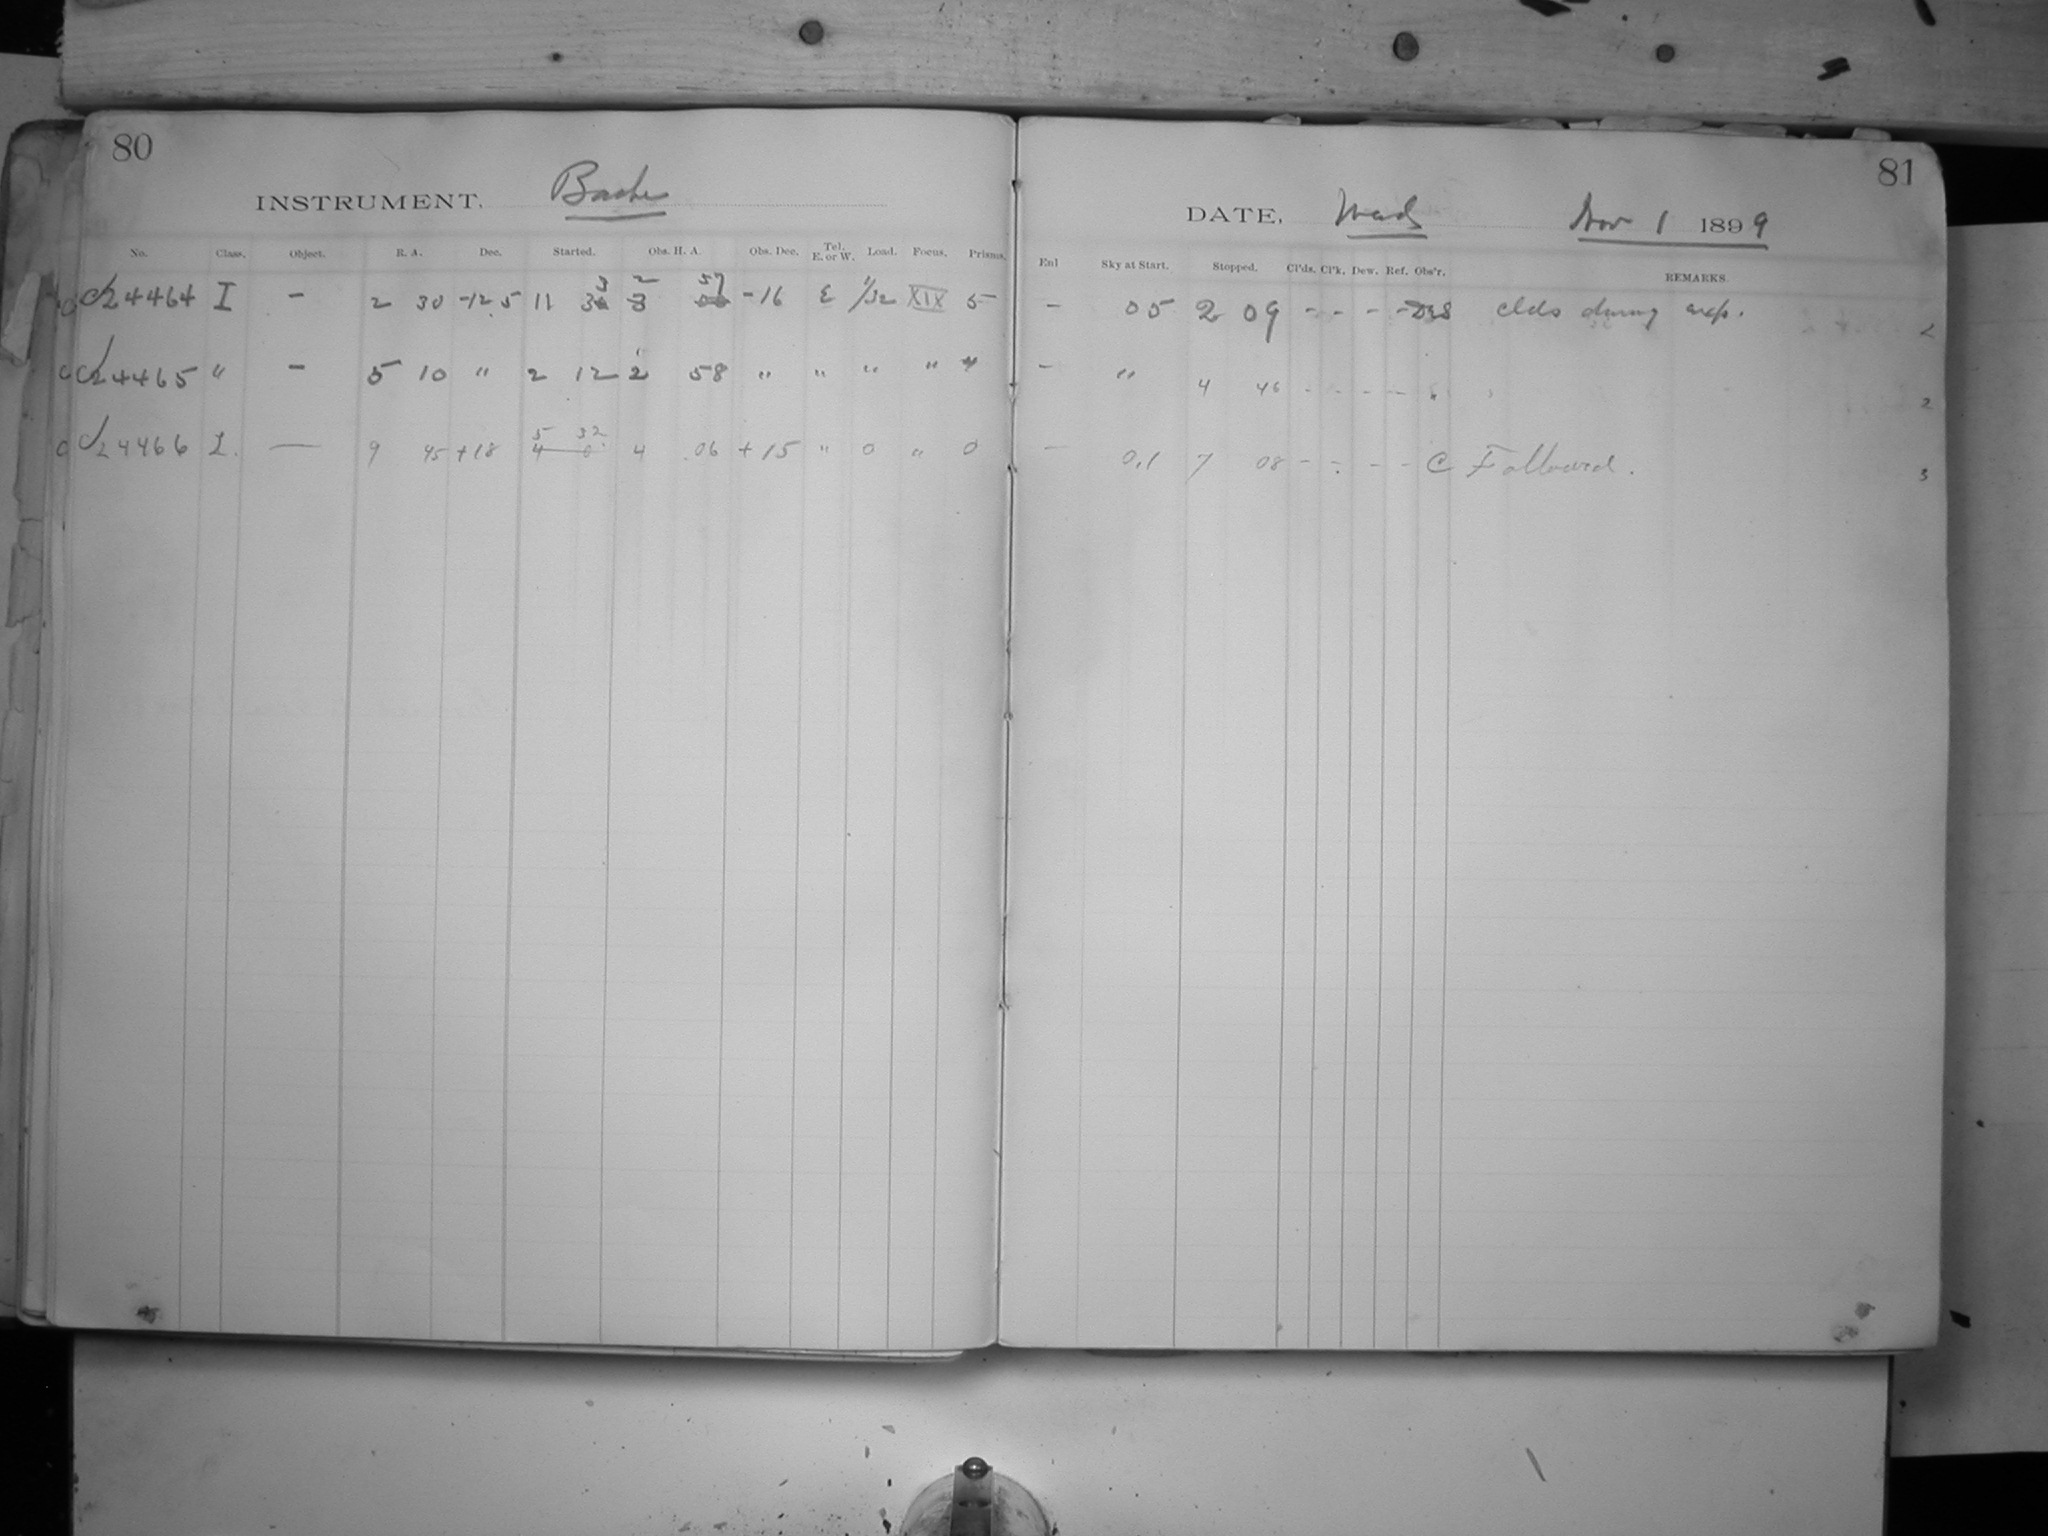 80
INSTRUMENT. Bache
No. Class. Object. R. A. Dec. Started. Obs. H. A. Obs. Dec. Tel. E. or W. Load. Focus. Prisms.
24464 I - 2 30 -12.5 11 3 2 57 -16 E 1/32 XIX 5
24465 " - 5 10 " 2 12 2 58 " " " " "
24466 I. — 9 45 +18 5 32 4 06 +15 " 0 " 0
81
DATE, Wed Nov 1 1899
Enl Sky at Start. Stopped. Cl'ds. Cl'k. Dew. Ref. Obs'r. REMARKS.
- 05 2 09 - - - - clds during exp.
- " 4 46 - - - - " 2
- 0.1 7 08 - - - - C Followed. 3